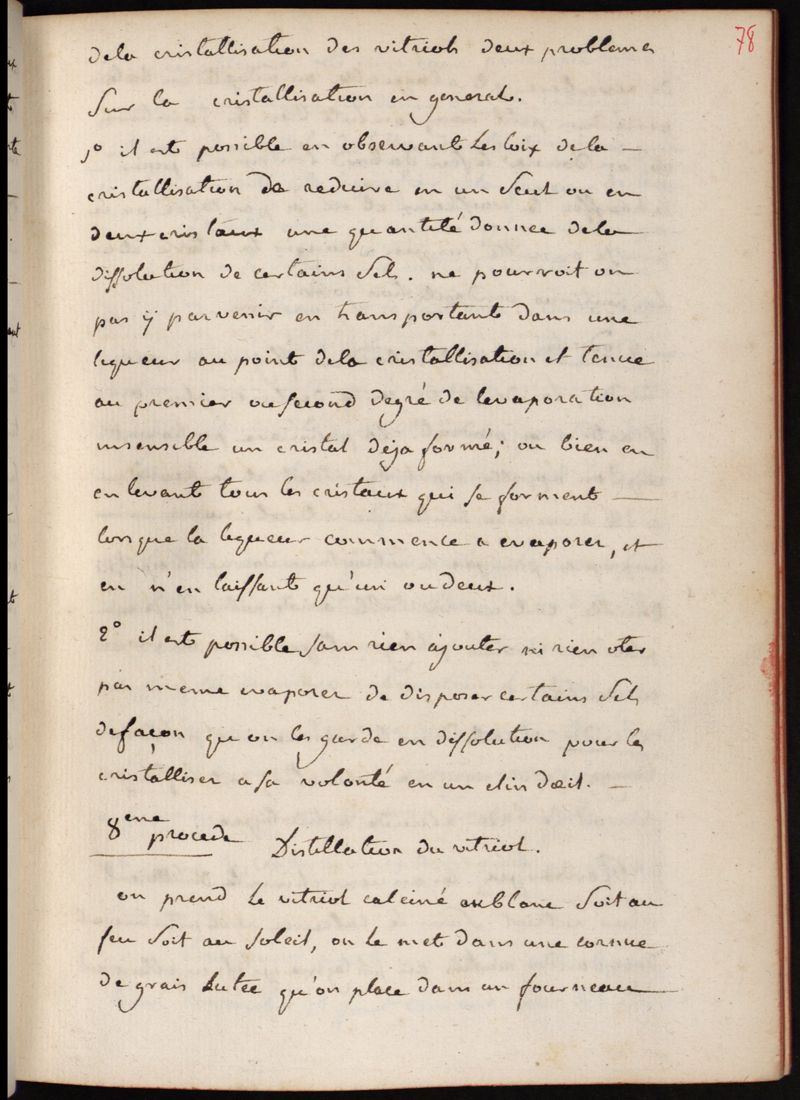 78
dela cristallisation des vitriols deux problemes
sur la cristallisation en general.
1° il est possible en observant les loix dela —
cristallisation de reduire en un seul ou en
deux cristaux une quantité donnee dela
dissolution de certains sels. ne pourroit on
pas ÿ parvenir en transportant dans une
liqueur au point dela cristallisation et tenue
au premier ou second degré de levaporation
insensible un cristal deja formé; ou bien en
enlevant tous les cristaux qui se forment —
lorsque la liqueur commence a evaporer, et
en n'en laissant qu'un ou deux.
2° il est possible sans rien ajouter ni rien oter
par meme evaporer de disposer certains sels
de façon que on les garde en dissolution pour les
cristalliser a sa volonté en un clin dœil. —
8eme procede Distillation du vitriol.
on prend le vitriol calciné au blanc soit au
feu soit au soleil, on le met dans une cornue
de grais lutee qu'on place dans un fourneau